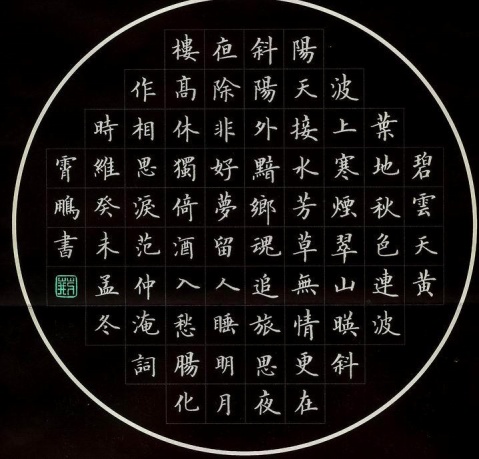 碧雲天黄
葉地秋色連波
波上寒煙翠山暎斜
陽天接水芳草無情更在
斜陽外黯鄉魂追旅思夜
亱除非好夢留人睡明月
樓髙休獨倚酒入愁腸化
作相思淚范仲淹詞
時維癸未孟冬
霄鵬書